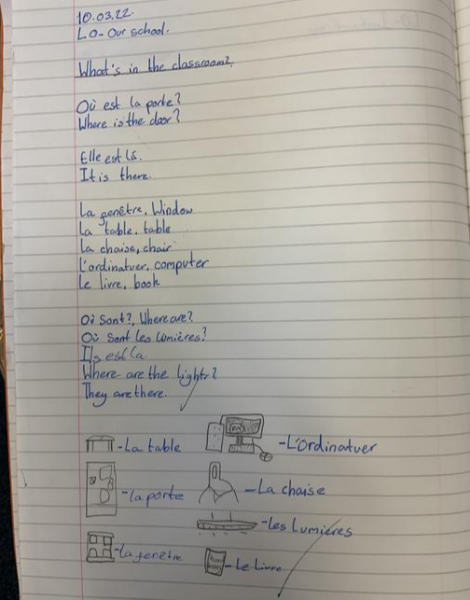 10.03.22.
LO- Our school.
What's in the classroom?
Où est la porte?
Where is the door?
Elle est là.
It is there.
La genêtre, Window
La table, table
La chaise, chair
L'ordinatuer, computer
Le livre, book
Où Sont?, Where are?
Où sont les lumières?
Ils est La
Where are the lights?
They are there.
-La table
-L'Ordinatuer
-la porte
-La chaise
-les Lumières
-la fenêtre
-Le Livre